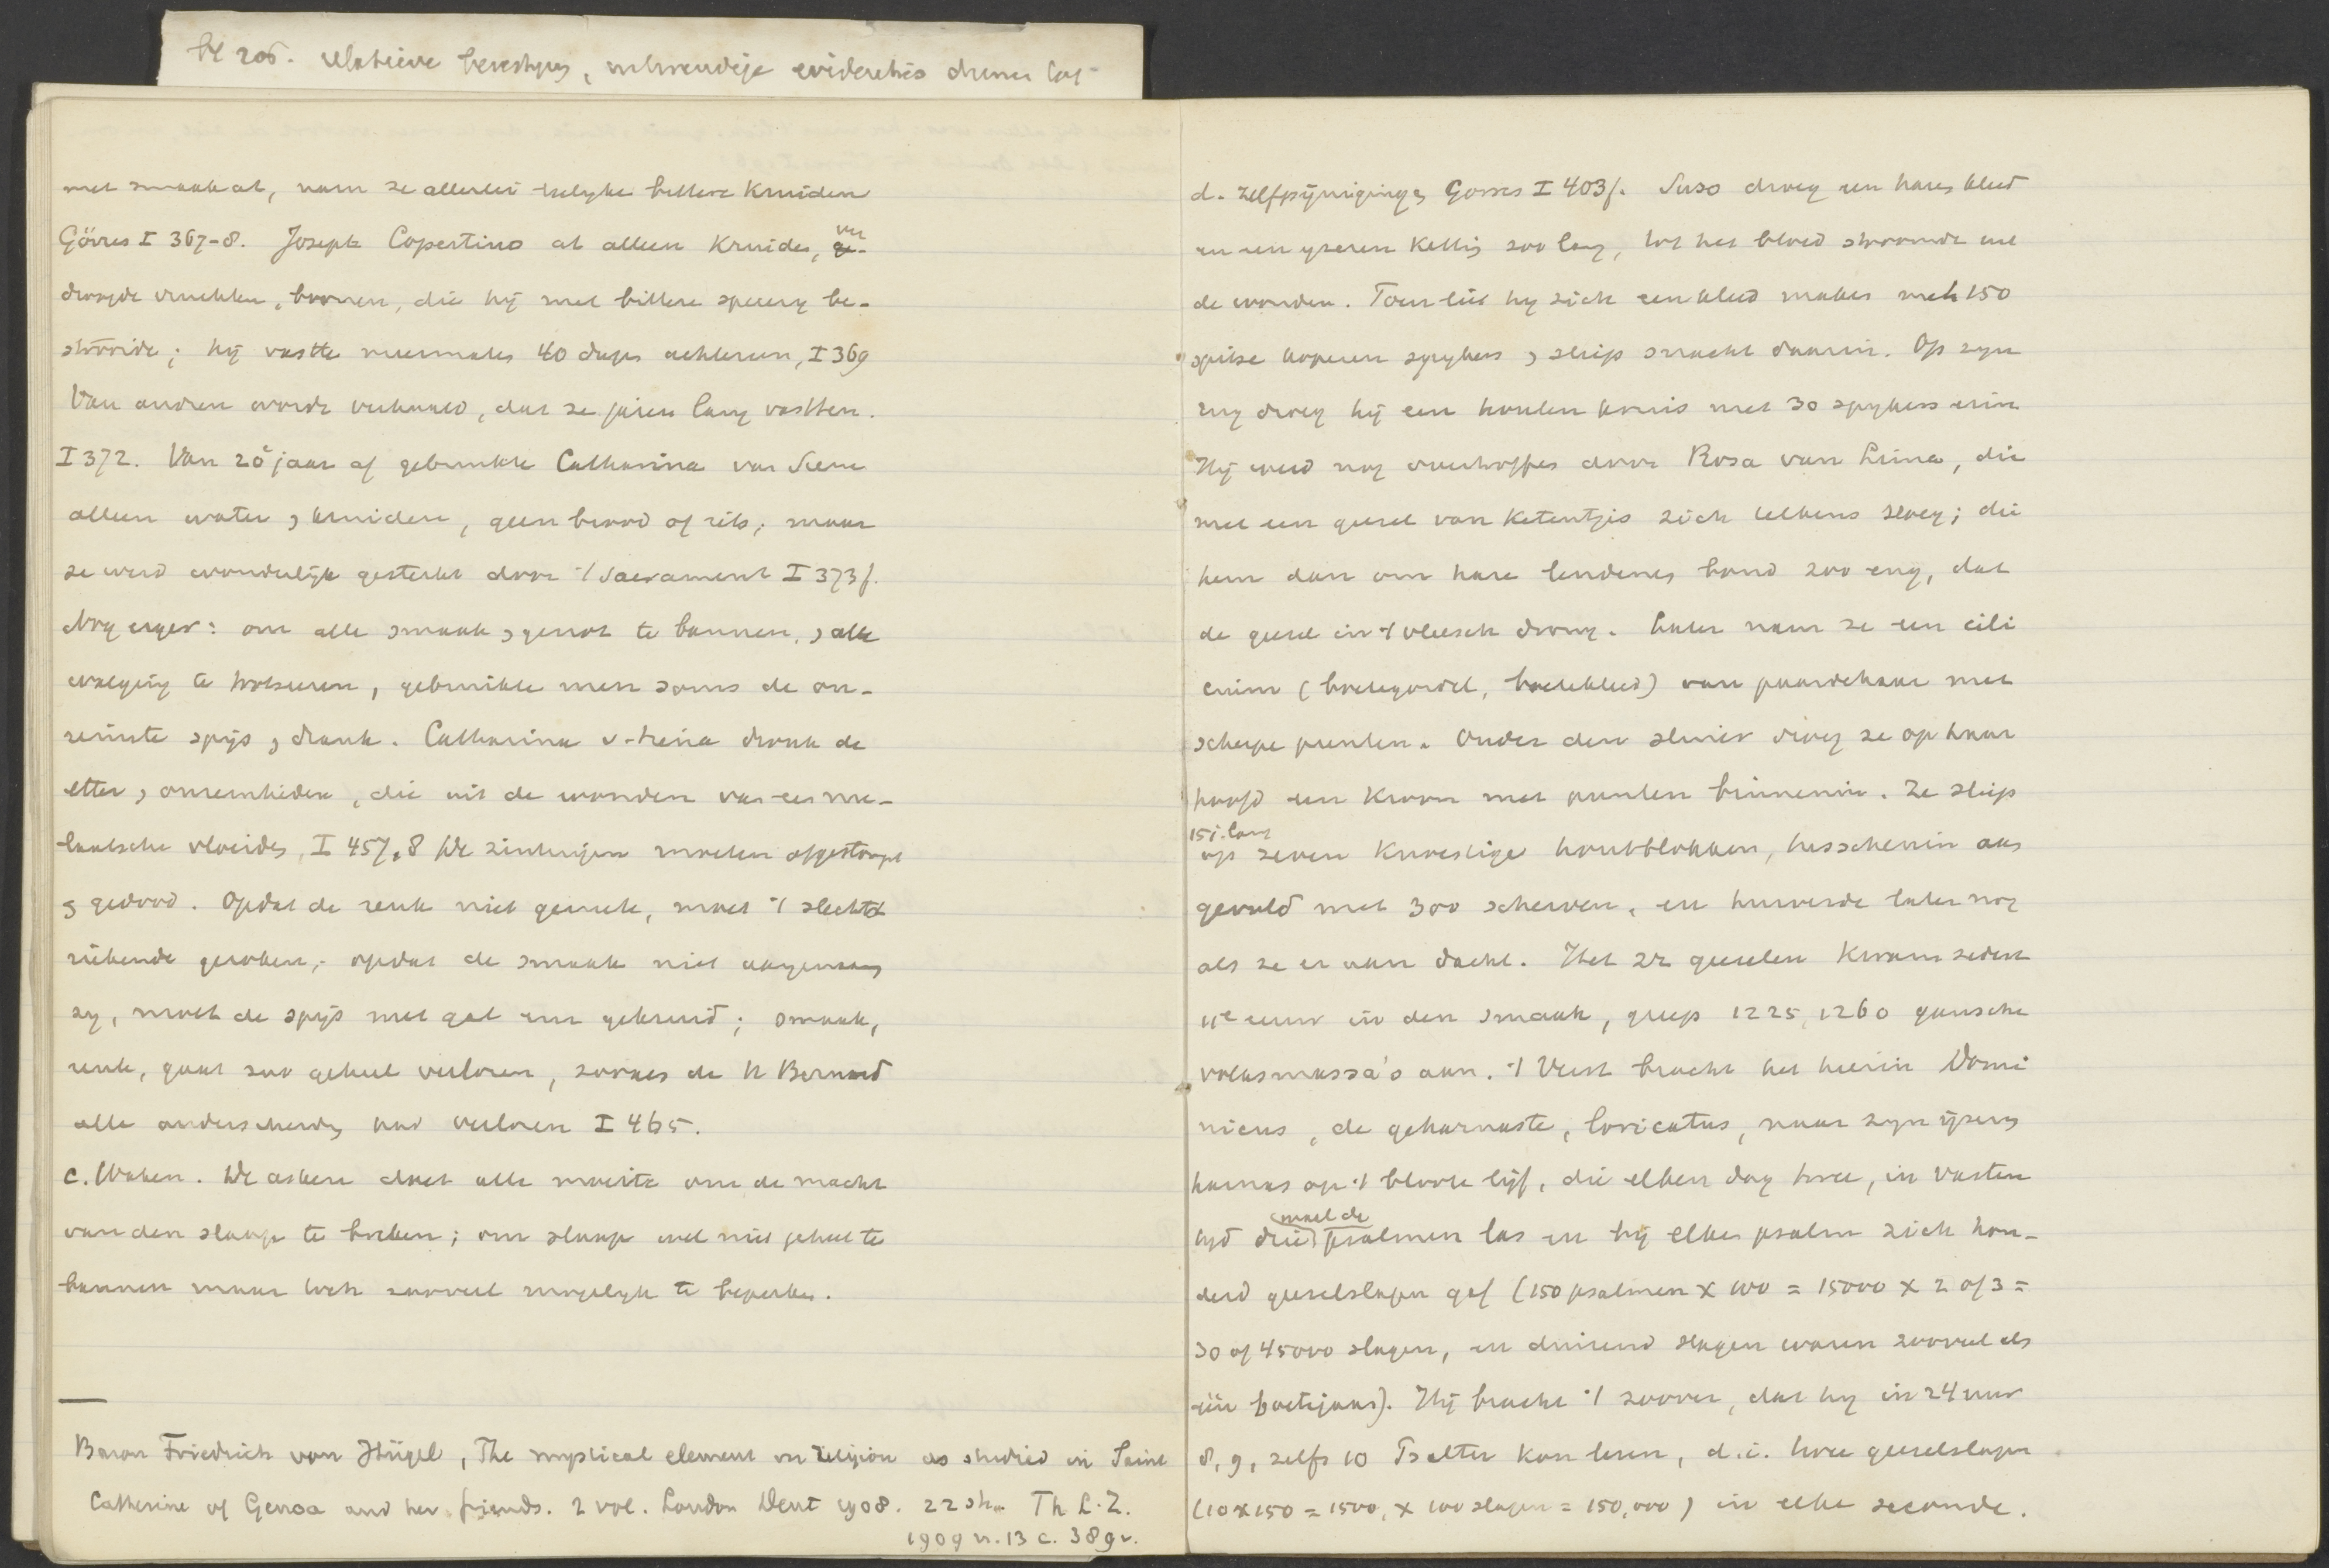 bl 206. relative
met smaak at, nam ze allerlei bittere Kruiden
Görres I 367-8. Joseph Copertino at alleen Kruiden, en ge-
droogde vruchten, boonen, die hij met bittere specery be-
strooide; hij vastte meermalen 40 dagen achtereen, I 369
Van andren wordt verhaald, dat ze jaren lang vastten.
I 372. Van 20e jaar af gebruikte Catharina van Siena
alleen water, kruiden, geen brood of iets; maar
ze werd wonderlijk gesterkt door 't Sacrament I 373f.
Nog erger: om alle smaak, genot te bannen, alle
walging te trotseeren, gebruikte men soms de on-
reinste spijs, drank. Catharina v. Siena dronk de
etter, onreinheden, die uit de wonden van een me-
laatsche vloeiden, I 457,8 De zintuigen moeten afgestompt
gedood. Opdat de reuk niet geniete, moet 't slechtst
riekende geroken; opdat de smaak niet aangenaam
zy, moet de spijs met gal enz gekruid; smaak,
reuk, gaat zoo geheel verloren, zooals de H Bernard
alle onderscheiding had verloren I 465.
c. Waken. De asceet doet alle moeite om de macht
van den slaap te breken; om slaap wel niet geheel te
bannen maar toch zooveel mogelyk te beperken.
Baron Friedrich von Hügel, The mystical element in religion as studied in Saint
Catherine of Genoa and her friends. 2 vol. London Dent 1908. 22 sh. Th L. Z.
1909 n. 13 c. 389v.
d. Zelfpijnigingen Gorres I 403f. Suso droeg een haren kleed
en een yzeren Ketting zoo lang, tot het bloed stroomde uit
de wonden. Toen liet hy zich een kleed maken met 150
spitse koperen spykers, sliep snachts daarin. Op zyn
rug droeg hij een houten kruis met 30 spykers erin
Hij werd nog overtroffen door Rosa van Lima, die
met een geesel van Ketentjes zich telkens sloeg; die
hem dan om hare lendenen bond zoo eng, dat
de geesel in 't vleesch drong. Later nam ze een cili
cium (boetegordel, boetekleed) van paardehaar met
scherpe punten. Onder den sluier droeg ze op haar
hoofd een Kroon met punten binnenin. Ze sliep
15 j. lang
op zeven Knoestige houtblokken, tusschenin
gevuld met 300 scherven, en huiverde later nog
als ze er aan dacht. Het zr geeselen Kwam sedert
11e eeuw in den smaak, greep 1225, 1260 gansche
volksmassa's aan. 't Verst bracht het hierin Domi
nicus, de geharnaste, loricatus, naar zyn ijzeren
harnas op 't bloote lijf, die elken dag twee, in Vasten
maal de
tyd drie psalmen las en bij elken psalm zich hon-
derd geeselslagen gaf (150 psalmen x 100 = 15000 x 2 of 3 =
30 of 45000 slagen, en duizend slagen waren zooveel als
één boetejaar). Hij bracht 't zoover, dat hy in 24 uur
8, 9, zelfs 10 Psalter kon lezen, d.i. twee geeselslagen
(10 x 150 = 1500, x 100 slagen = 150,000) in elke seconde.